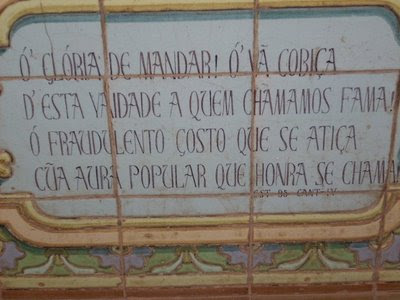 Ó' GLÓRIA DE MANDAR! Ó' VÃ COBIÇA
D'ESTA VAIDADE A QUEM CHAMAMOS FAMA!
Ó FRAUDULENTO GOSTO QUE SE ATIÇA
CŨA AURA POPULAR QUE HONRA SE CHAMA
EST 95 CANT IV